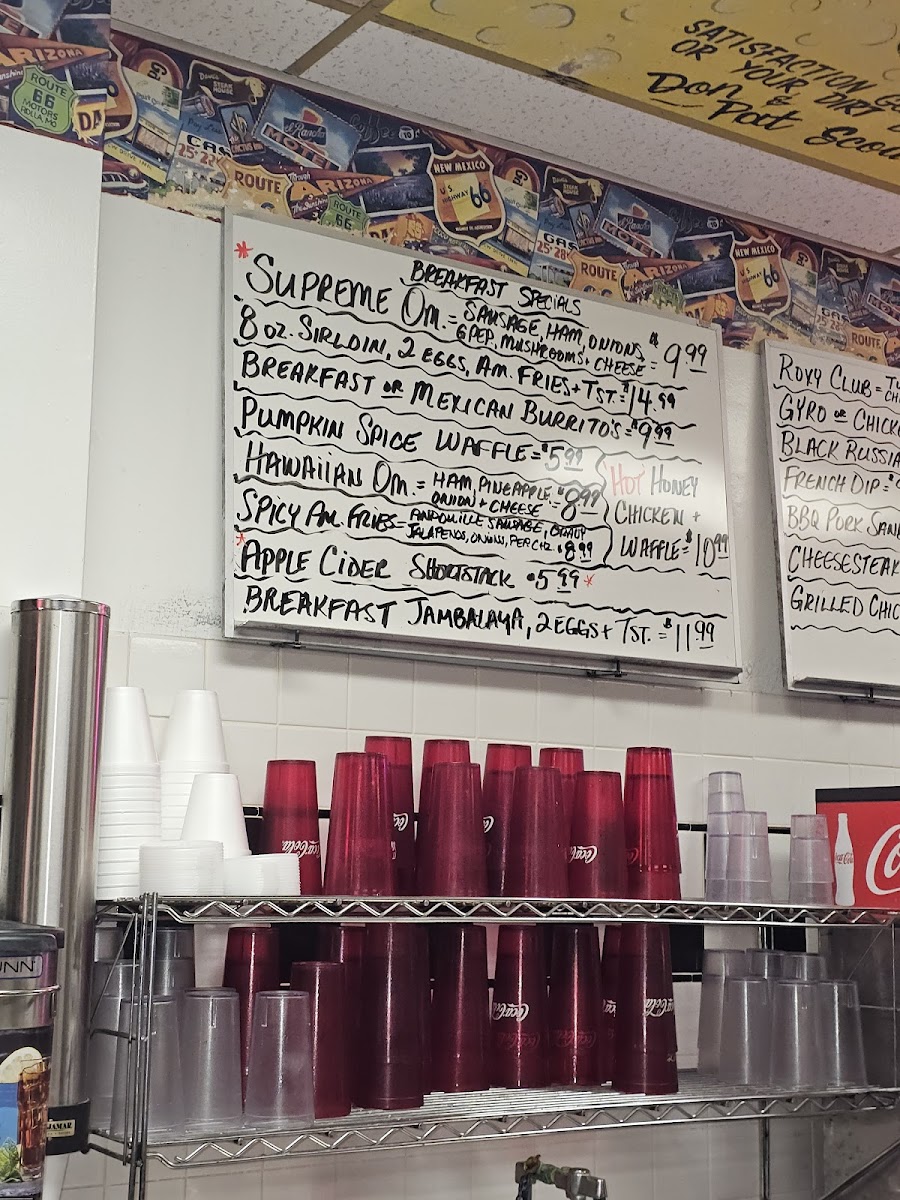 SATISFACTION
OR YOUR DIRT
Don &
Pat
ARIZONA
ROUTE
66
MOTORS
ROLLA, MO
NEW MEXICO
U.S.
HIGHWAY 66
MOTEL
ROUTE
ARIZONA
ROUTE
66
GAS
25 28
ROUTE
ARIZONA
MOTEL
NEW MEXICO
66
ROUTE
BREAKFAST SPECIALS
* SUPREME OM. = SAUSAGE, HAM, ONIONS,
G PEP, MUSHROOMS, + CHEESE = $9.99
8 OZ. SIRLOIN, 2 EGGS, AM. FRIES + TST. = $14.99
BREAKFAST OR MEXICAN BURRITO'S = $9.99
PUMPKIN SPICE WAFFLE = $5.99
HAWAIIAN OM. = HAM, PINEAPPLE,
ONION + CHEESE = $8.99
HOT HONEY
CHICKEN +
WAFFLE = $10.99
SPICY AM. FRIES = ANDOUILLE SAUSAGE, GRAVY
JALAPENOS, ONIONS, PEP CHZ. $8.99
* APPLE CIDER SHORTSTACK $5.99 *
BREAKFAST JAMBALAYA, 2 EGGS + TST. = $11.99
ROXY CLUB =
GYRO OR
BLACK
FRENCH DIP =
BBQ PORK
CHEESESTEAK
GRILLED
Coca-Cola
Coca-Cola
Coca-Cola
Coca-Cola
Coca-Cola
Coca-Cola